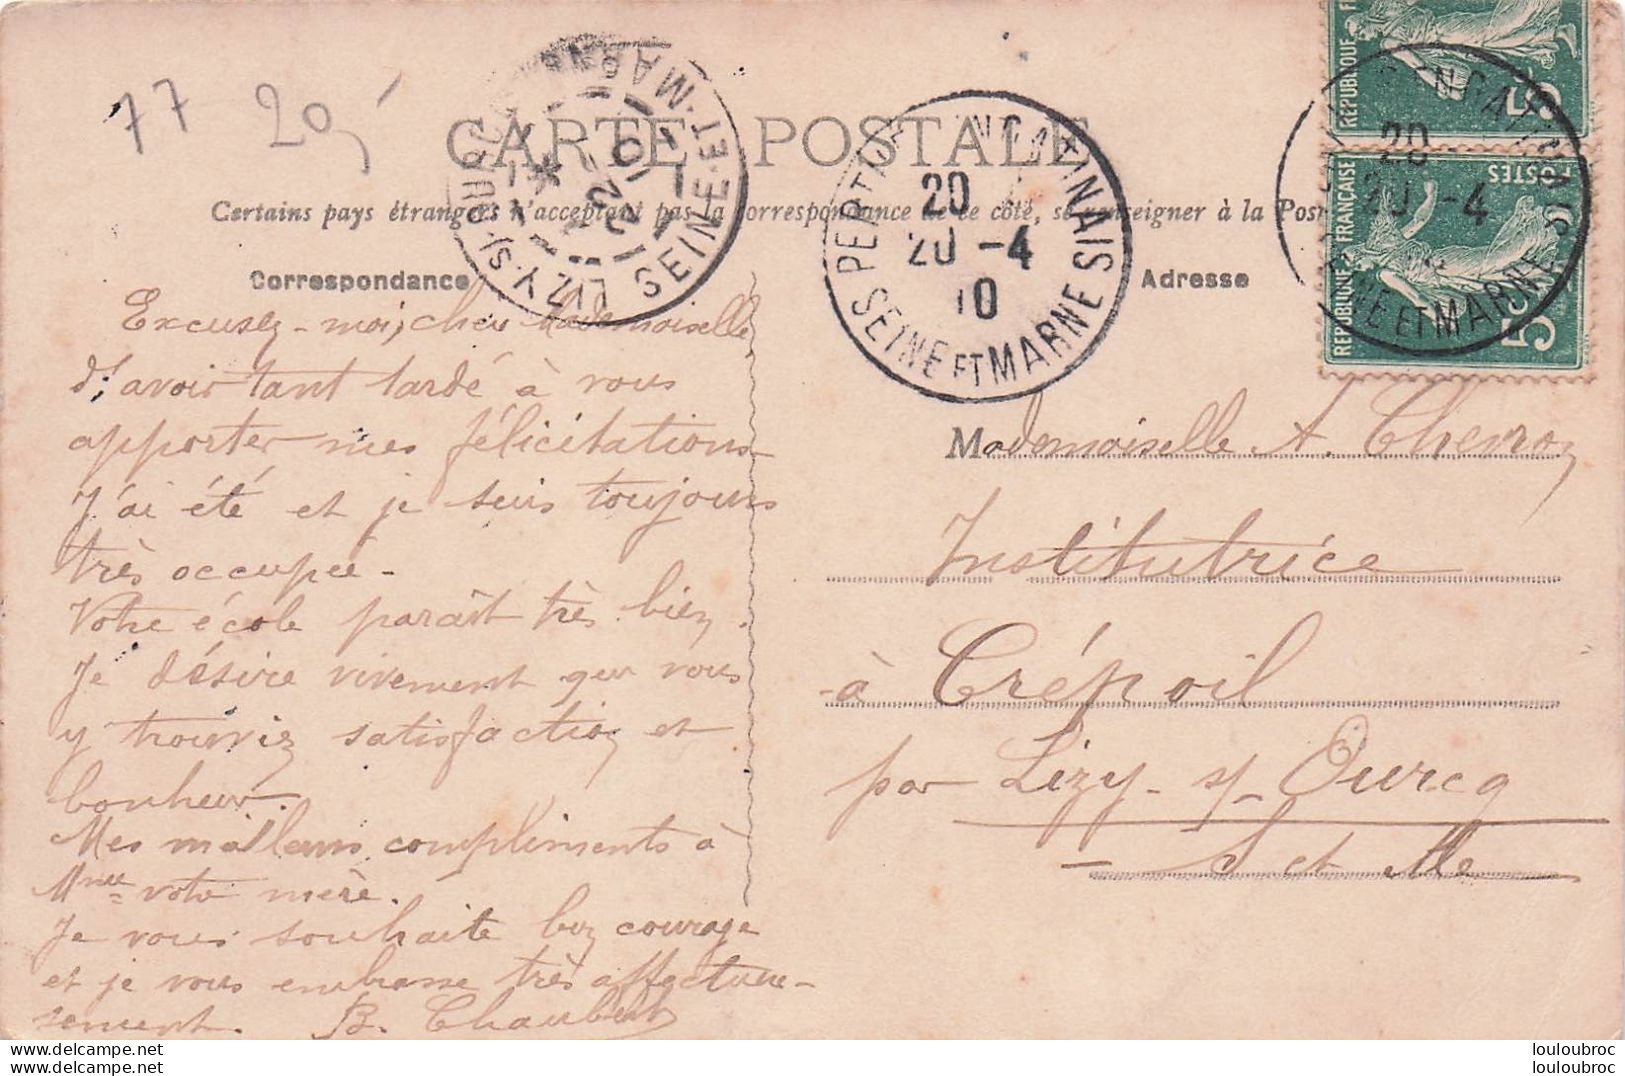 77 20,
CARTE POSTALE
Certains pays étrangers n'acceptant pas la correspondance de ce côté, se renseigner à la Poste
Correspondance
Excusez-moi, cher Mademoiselle
d'avoir tant tardé à vous
apporter mes félicitations-
J'ai été et je suis toujours
très occupée.
Votre école paraît très bien.
Je désire vivement que vous
y trouviez satisfaction et
bonheur.
Mes meilleurs compliments à
Mme votre mère.
Je vous souhaite bon courage
et je vous embrasse très affectueu-
sement. B. Chaubert
Adresse
Mademoiselle A. Cheiroy
Institutrice
à Crépoil
par Lizy-s/-Ourcq
S et Me
LIZY-S/-OURCQ SEINE-ET-MARNE
22 10
SEINE ET MARNE
20
20 -4
10
20
20 -4
SEINE ET MARNE
REPUBLIQUE F
5
REPUBLIQUE FRANÇAISE
POSTES
5c
louloubroc
louloubroc
louloubroc
louloubroc